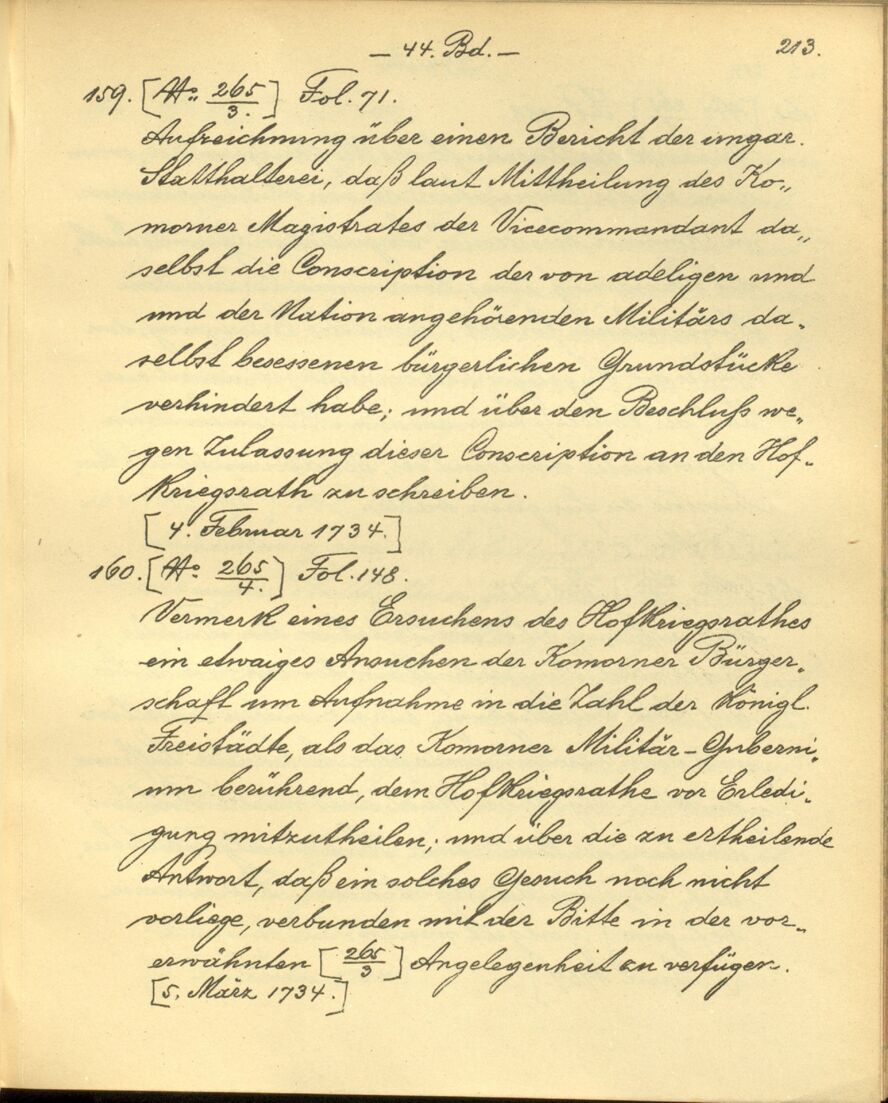 — 44. Bd. — 213.
159. [No. 265/3.] Fol. 71.
Aufzeichnung über einen Bericht der ungar.
Statthalterei, daß laut Mittheilung des Ko„
morner Magistrates der Vicecommandant da„
selbst die Conscription der von adeligen und
und der Nation angehörenden Militärs da„
selbst besessenen bürgerlichen Grundstücke
verhindert habe; und über den Beschluß we„
gen Zulassung dieser Conscription an den Hof„
kriegsrath zu schreiben.
[4. Februar 1734.]
160. [No. 265/4.] Fol. 148.
Vermerk eines Ersuchens des Hofkriegsrathes
ein etwaiges Ansuchen der Komorner Bürger„
schaft um Aufnahme in die Zahl der königl.
Freistädte, als das Komorner Militär-Guberni„
um berührend, dem Hofkriegsrathe vor Erledi„
gung mitzutheilen; und über die zu ertheilende
Antwort, daß ein solches Gesuch noch nicht
vorliege, verbunden mit der Bitte in der vor„
erwähnten [265/3] Angelegenheit zu verfügen.
[5. März 1734.]